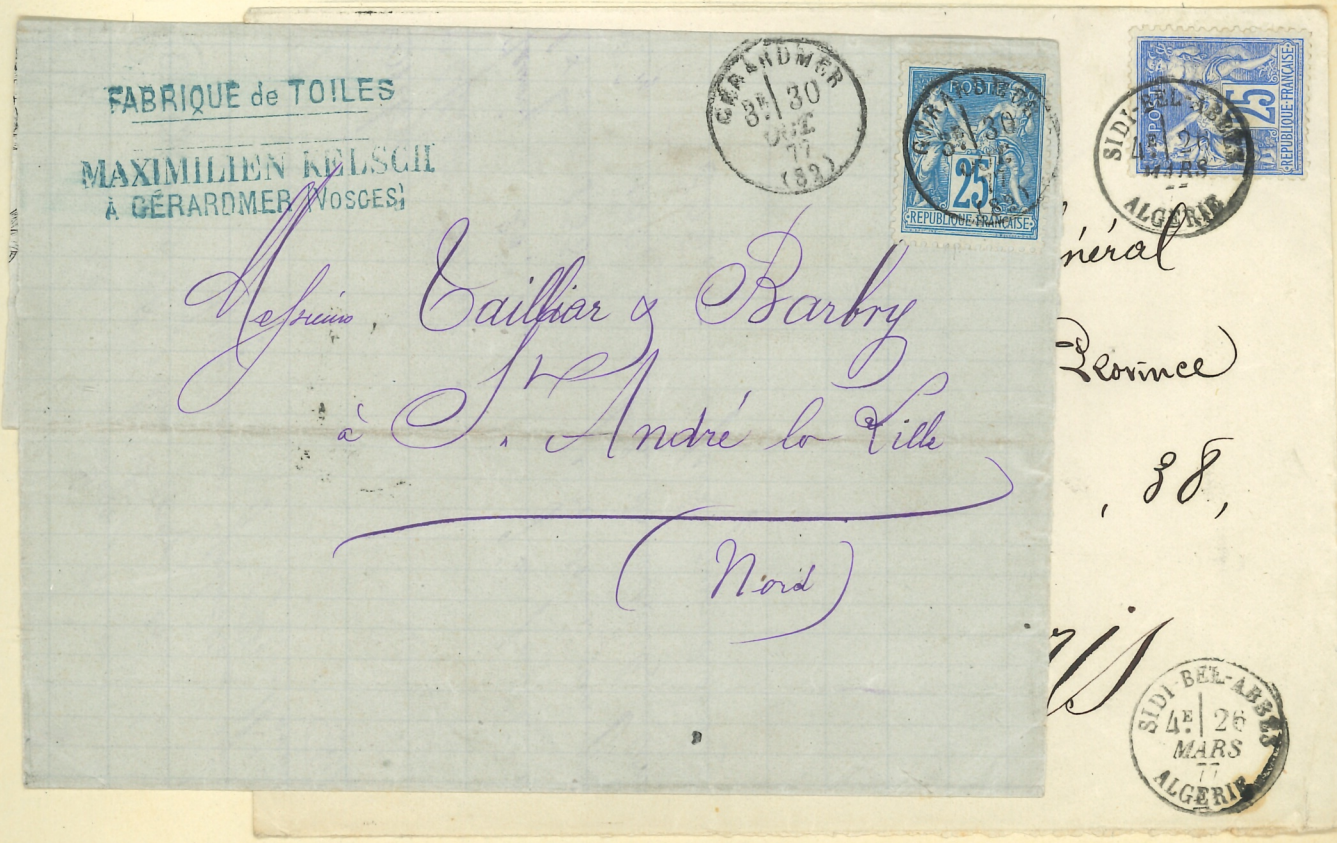 FABRIQUE de TOILES
MAXIMILIEN KELSCH
À GÉRARDMER (VOSGES)
GÉRARDMER
3E 30
77
(82)
GÉRARDMER
30
25
REPUBLIQUE FRANÇAISE
Messieurs Tailliar & Barbry
à St. André lez Lille
(Nord)
25
REPUBLIQUE FRANÇAISE
SIDI-BEL-ABBÈS
4E 26
MARS
ALGÉRIE
néral
Province
, 38,
ris
SIDI-BEL-ABBÈS
4E 26
MARS
77
ALGÉRIE